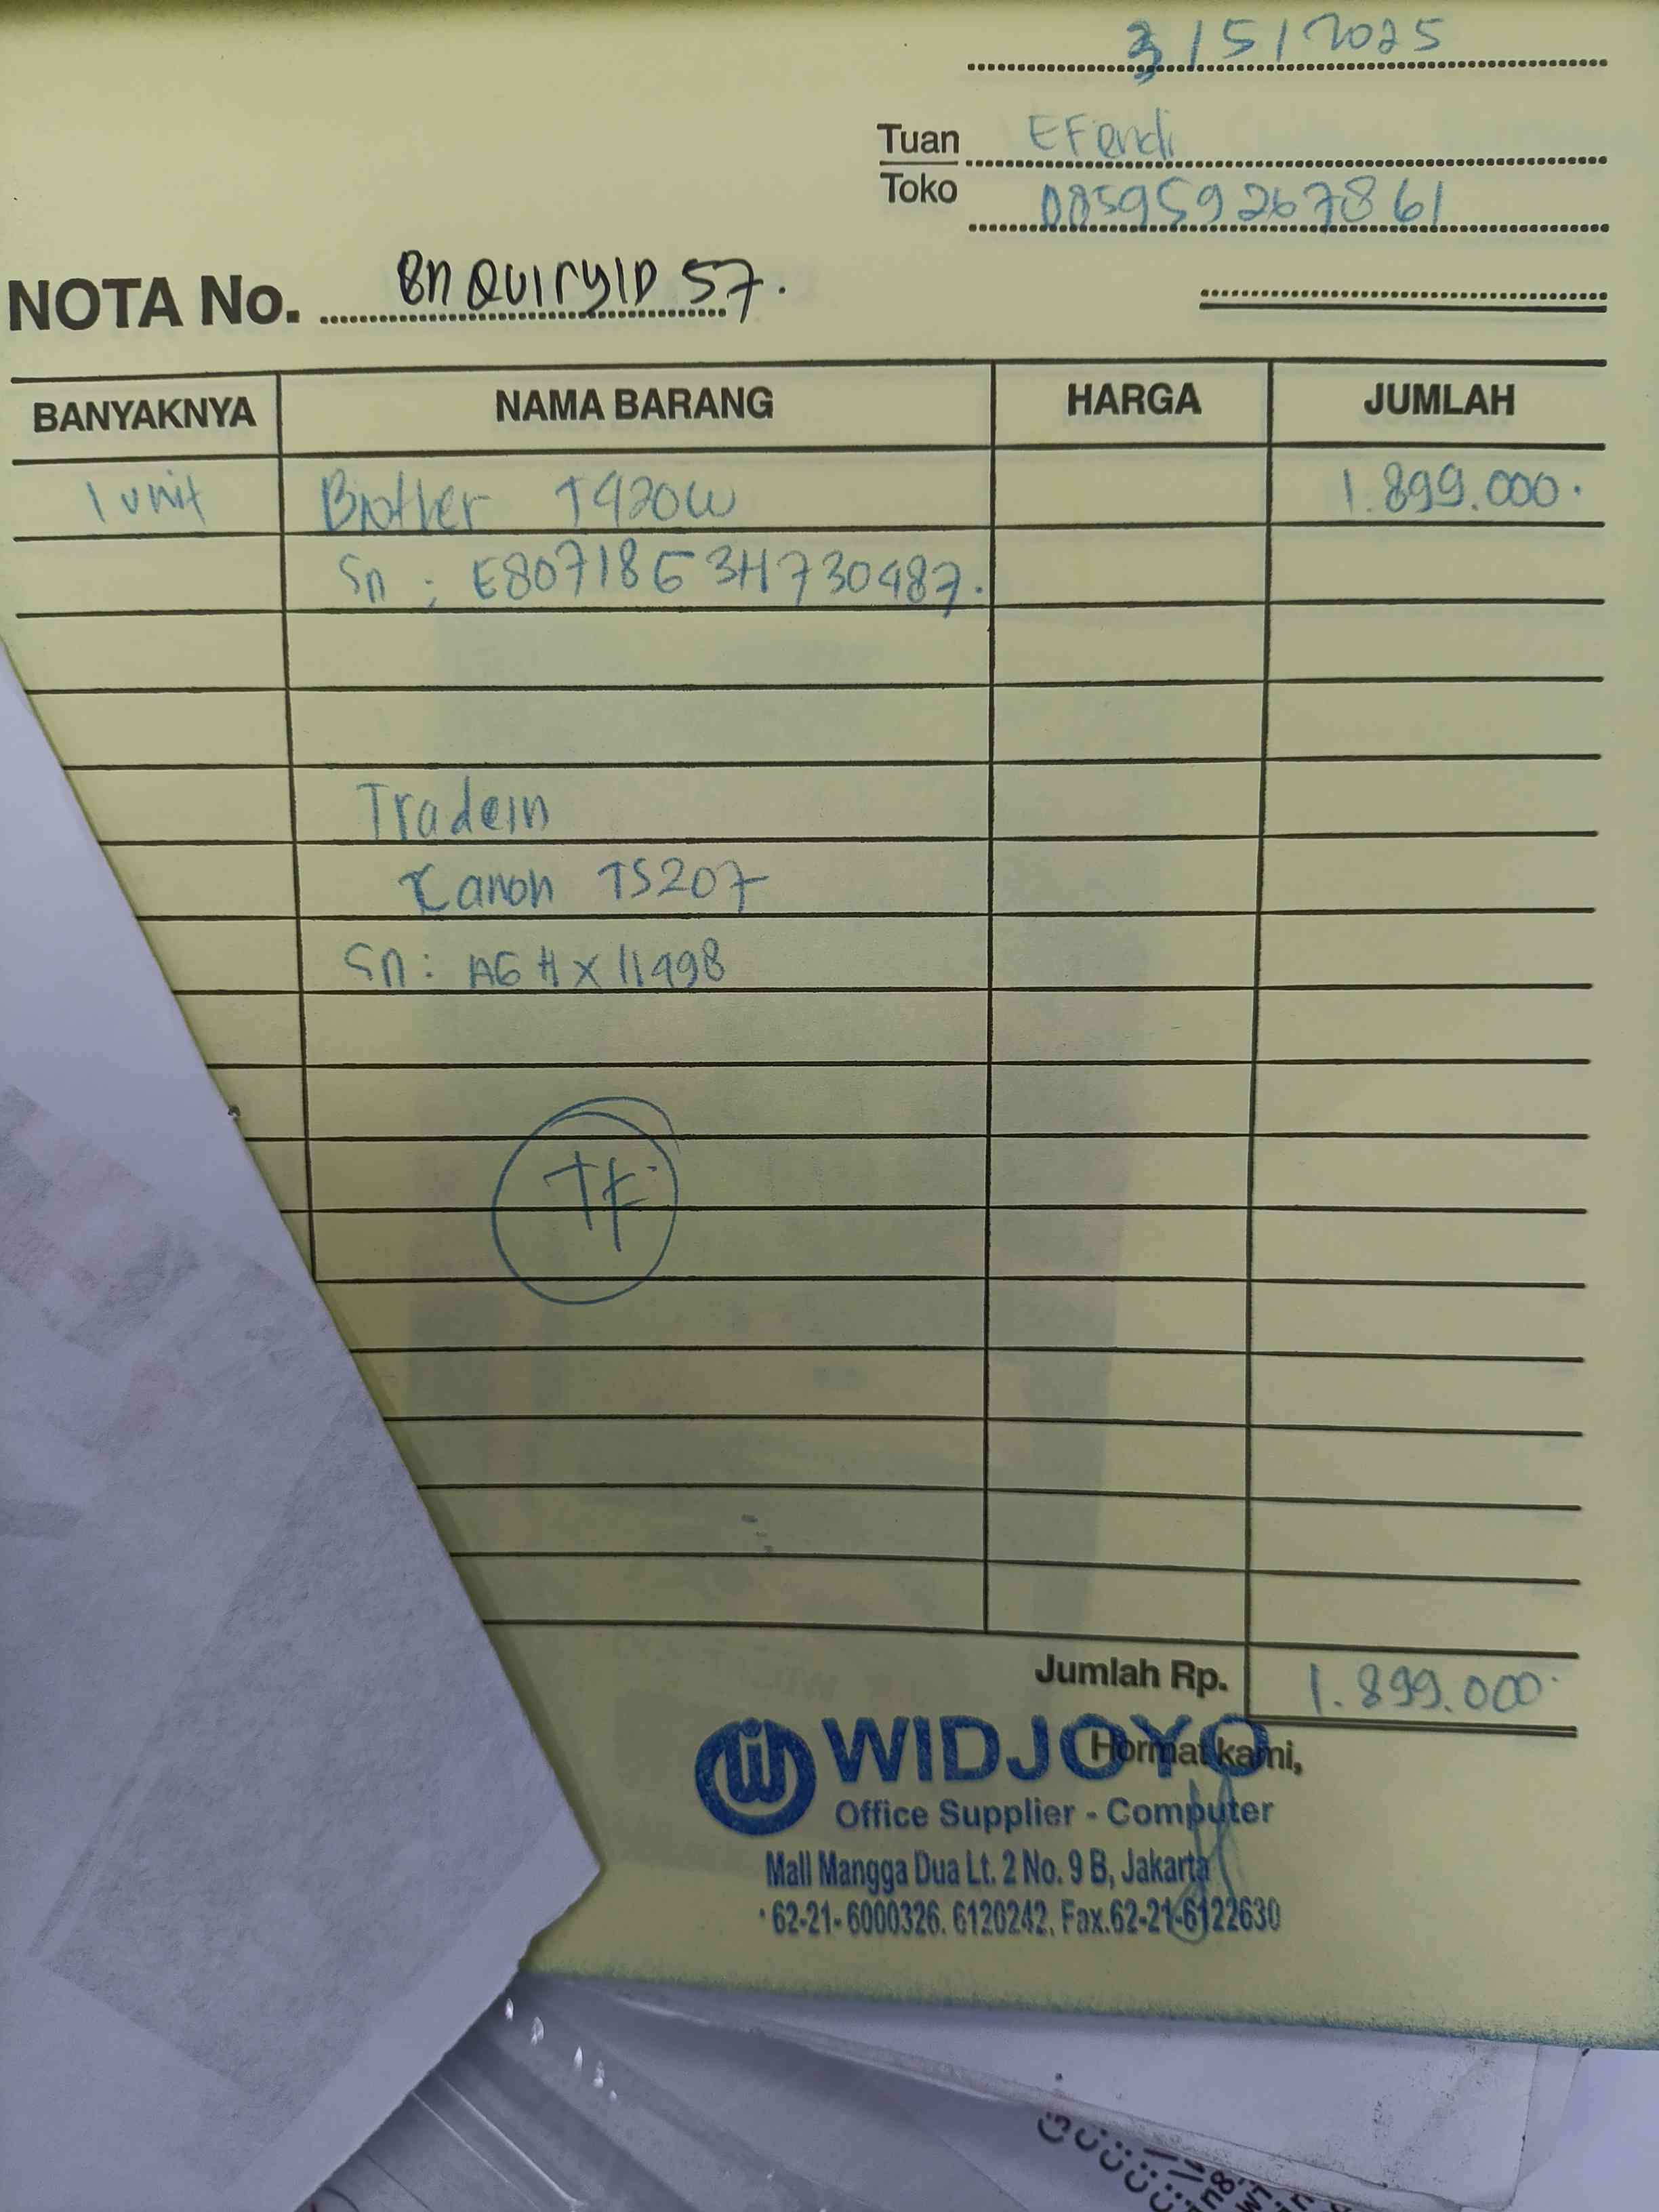 3/5/2025
Tuan EFendi
Toko 085959267861
NOTA No. EnQuiryID 57.
BANYAKNYA NAMA BARANG HARGA JUMLAH
1 unit Brother T420W 1.899.000.
Sn : E80718G3H730487.
Tradein
Canon TS207
Sn: AGHX11998
TF
Jumlah Rp. 1.899.000.
Hormat kami,
WIDJOYO
Office Supplier - Computer
Mall Mangga Dua Lt. 2 No. 9 B, Jakarta
62-21- 6000326. 6120242. Fax.62-21-6122630